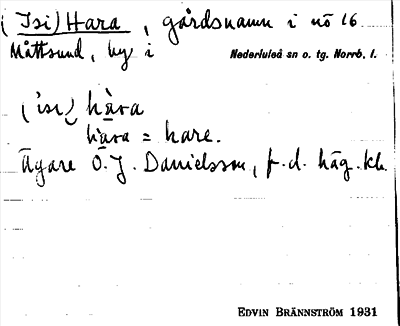 (Isi) Hara, gårdsnamn i nö 16
Måttsund, by i Nederluleå sn o. tg. Norrb. l.
('isi) hàra
hàra = hare.
Ägare O. J. Danielsson, f. d. häg. kh.
EDVIN BRÄNNSTRÖM 1931